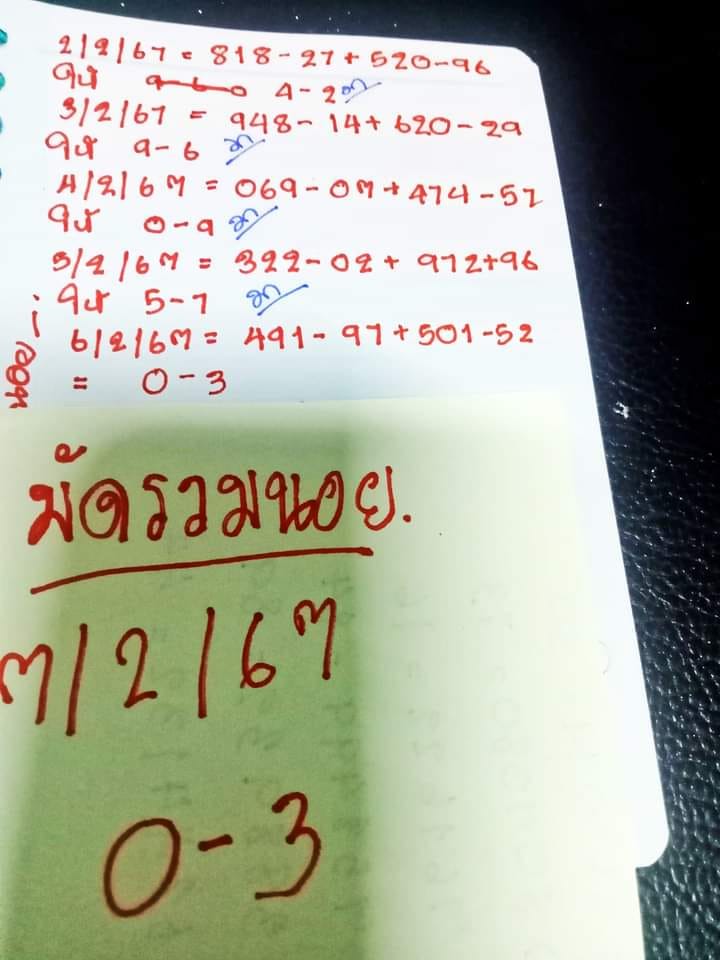 2/2/67 = 818-27+520-96
ให้ 9-6-0 4-2
3/2/67 = 948-14+620-29
ให้ 9-6
4/2/67 = 069-07+474-57
ให้ 0-9
5/2/67 = 322-02+972+96
ให้ 5-7
6/2/67 = 491-97+501-52
= 0-3
มัดรวมนอย.
7/2/67
0-3